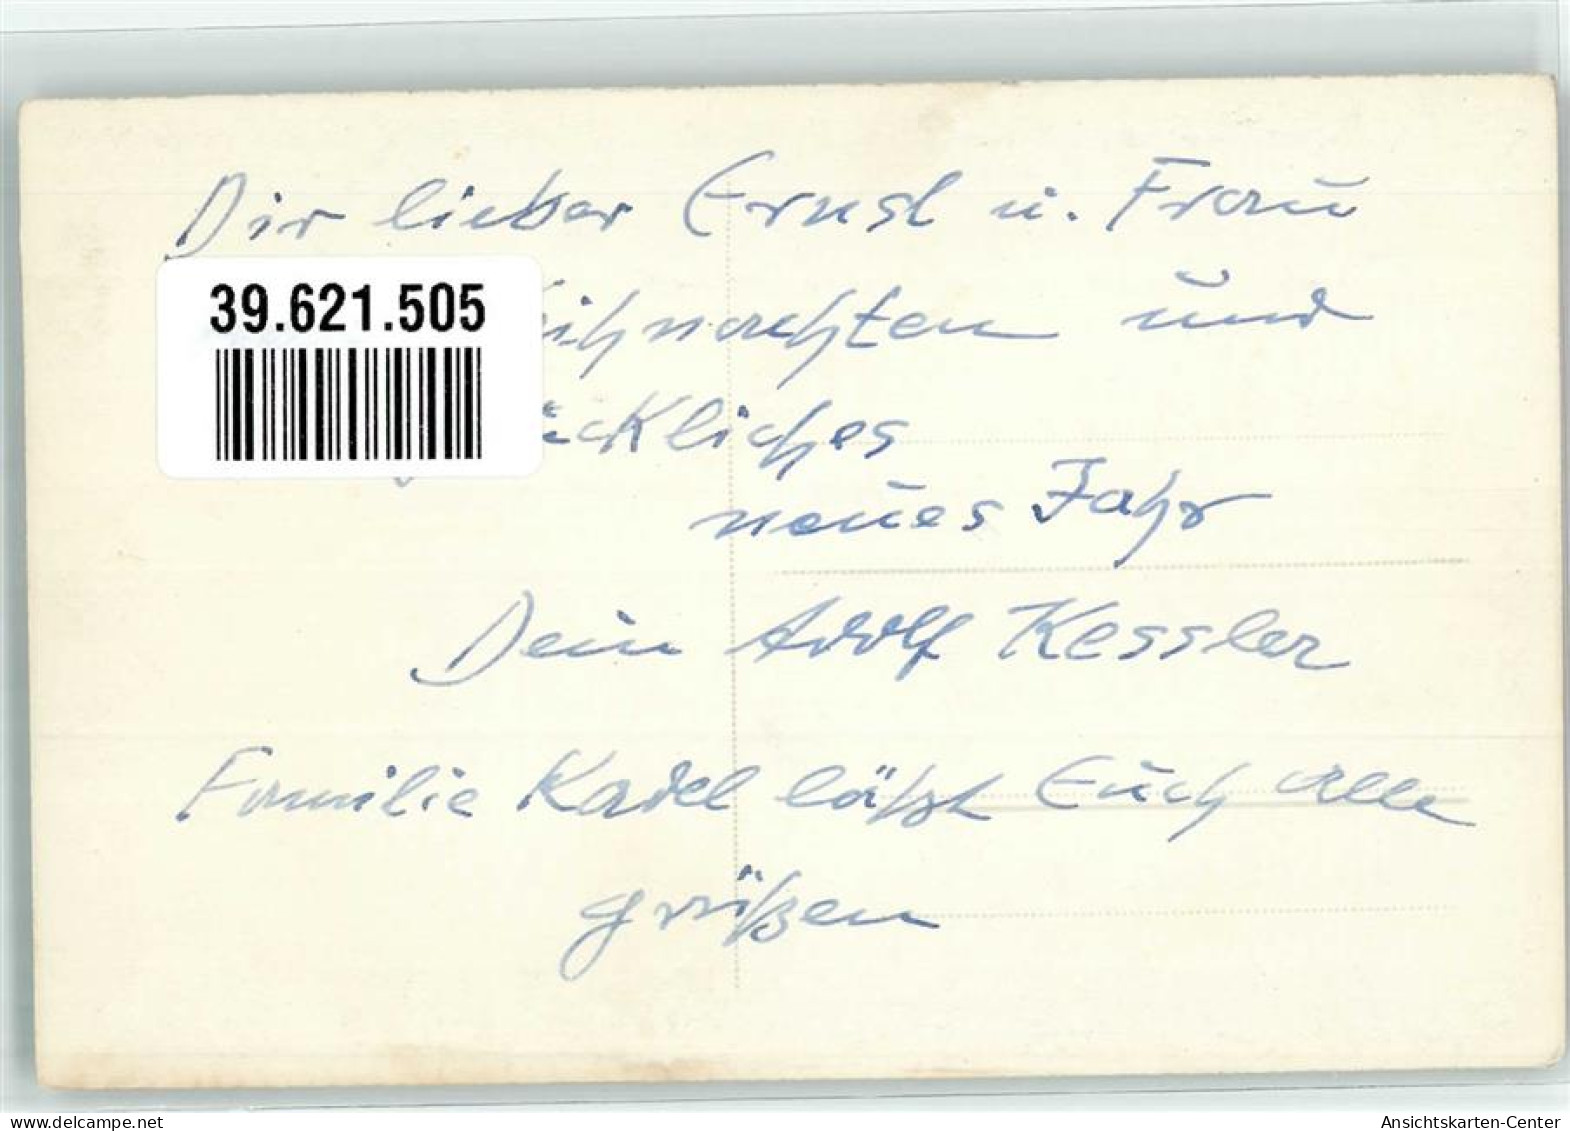 Dir lieber Ernst u. Frau
39.621.505
eihnachten und
ückliches
neues Jahr
Dein Adolf Kessler
Familie Kadel läßt Euch alle
grüßen
www.delcampe.net
Ansichtskarten-Center